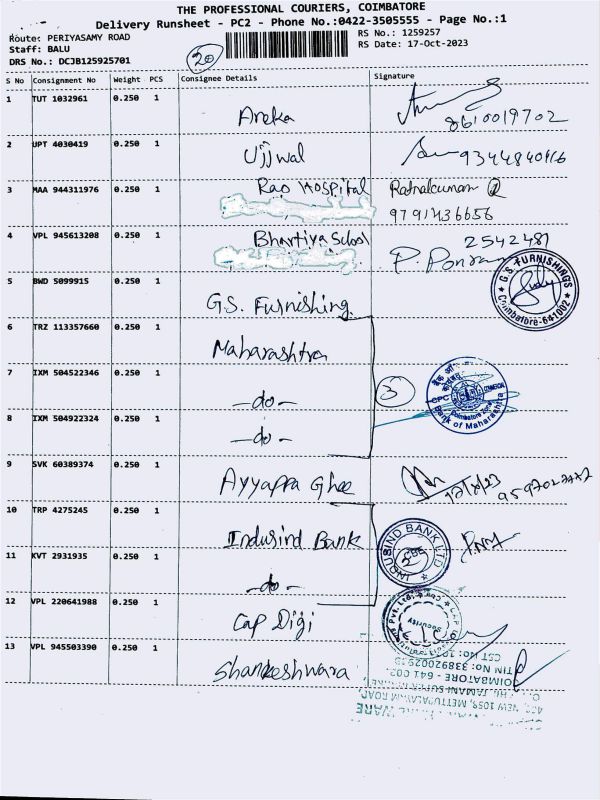 THE PROFESSIONAL COURIERS, COIMBATORE
Delivery Runsheet - PC2 - Phone No.:0422-3505555 - Page No.:1
Route: PERIYASAMY ROAD
Staff: BALU
DRS No.: DCJB125925701
20
RS No.: 1259257
RS Date: 17-Oct-2023
S No Consignment No Weight PCS Consignee Details Signature
1 TUT 1032961 0.250 1 Areka 8610019702
2 UPT 4030419 0.250 1 Ujjwal
3 MAA 944311976 0.250 1 Rao Hospital
9791436656
4 VPL 945613208 0.250 1 Bhartiya School 2542481
P. Ponraj
5 BWD 5099915 0.250 1 G.S. Furnishing
G.S. FURNISHINGS
Coimbatore-641002
6 TRZ 113357660 0.250 1 Maharashtra
7 IXM 504522346 0.250 1 -do-
3
CPC
Coimbatore Zone
Bank of Maharashtra
8 IXM 504922324 0.250 1 -do-
9 SVK 60389374 0.250 1 Ayyappa Ghee
10 TRP 4275245 0.250 1 Indusind Bank
INDUSIND BANK LTD
CBE
2
11 KVT 2931935 0.250 1 -do-
12 VPL 220641988 0.250 1 Cap Digi
Security
13 VPL 945503390 0.250 1 Shankeshwara
COIMBATORE - 641 002.
NEW 1059, METTUPALAYAM ROAD,